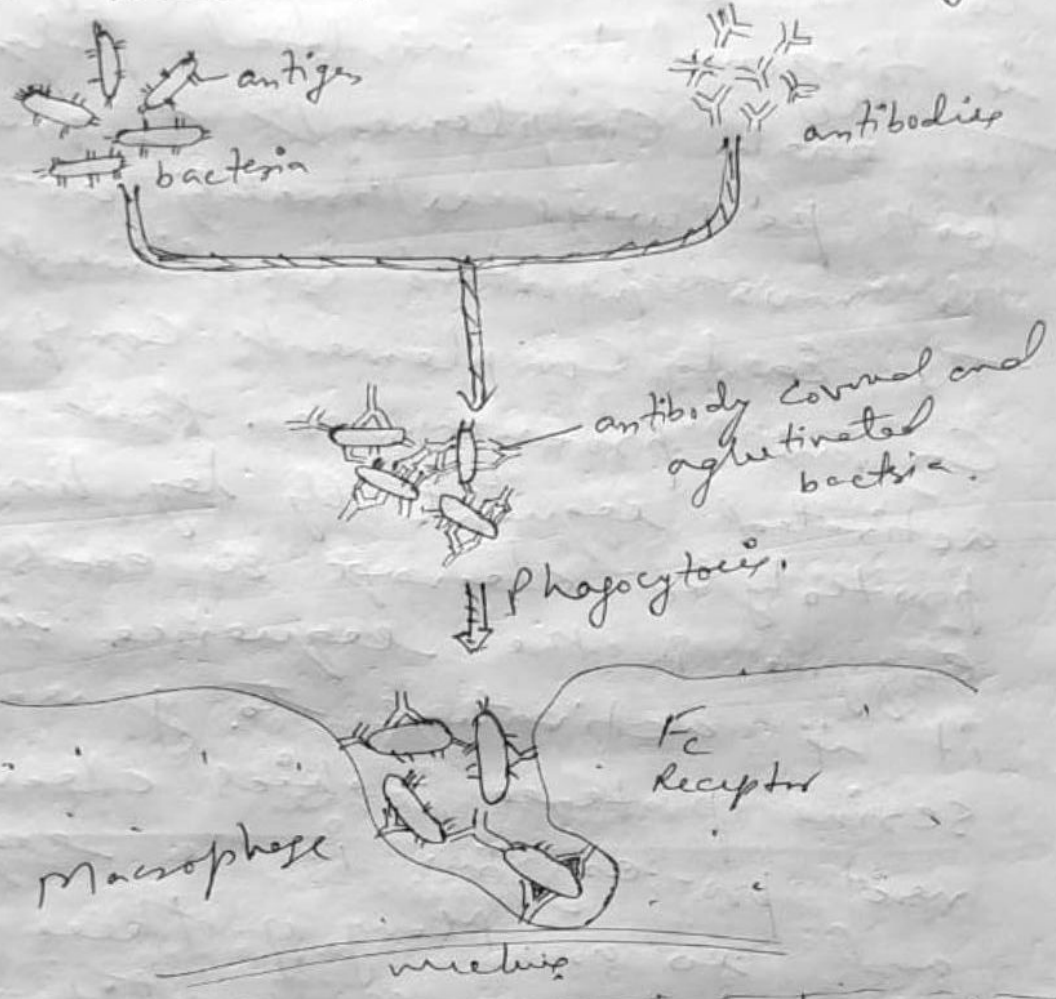 antigen
bacteria
antibodies
antibody covered and
aglutinated
bacteria.
Phagocytosis.
Fc
Receptor
Macrophage